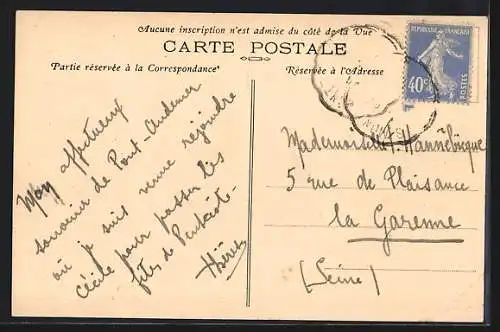 Aucune inscription n'est admise du côté de la Vue
CARTE POSTALE
Partie réservée à la Correspondance
Réservée à l'Adresse
RÉPUBLIQUE FRANÇAISE
40c
POSTES
affectueux
souvenir de Pont-Audemer
où je suis venue rejoindre
Cécile pour passer les
fêtes de Pentecôte.
Mademoiselle Hannebicque
5 rue de Plaisance
la Garenne
(Seine)